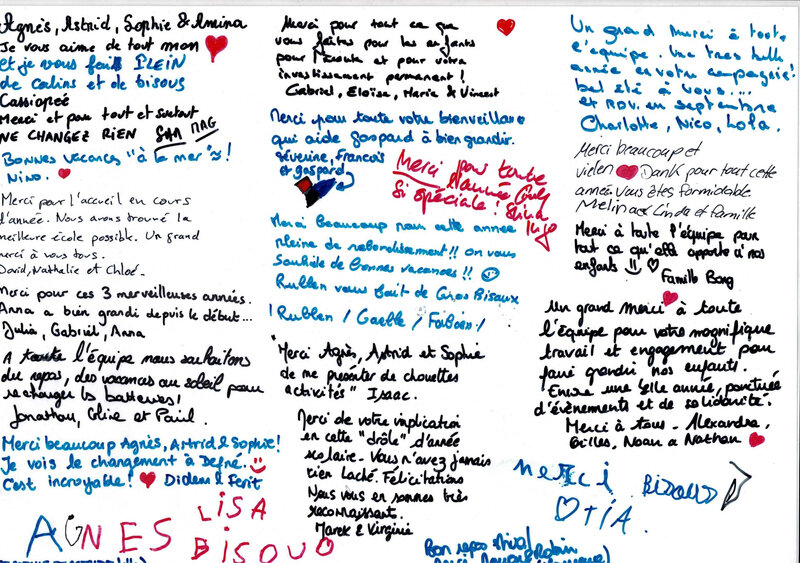 Agnès, Astrid, Sophie & Amina
Je vous aime de tout mon
et je vous fais PLEIN
de calins et de bisous
Cassiopée
Merci et pour tout et surtout
NE CHANGEZ RIEN
BONNES VACANCES "à la mer" !
NINO.
Merci pour l'accueil en cours
d'année. Nous avons trouvé la
meilleure école possible. Un grand
merci à vous tous.
David, Nathalie et Chloé.
Merci pour ces 3 merveilleuses années.
Anna a bien grandi depuis le début...
Julia, Gabriel, Anna
A toute l'équipe nous souhaitons
du repos, des vacances au soleil pour
rechanger les batteries!
Jonathan, et Paul.
Merci beaucoup Agnès, Astrid & Sophie!
Je vois le changement à Defné.
C'est incroyable! Didem & Ferit
AGNES LISA
BISOUO
Merci pour tout ce que
vous faites pour les enfants
pour l'écoute et pour votre
investissement permanent!
Gabriel, Eloïse, Marie & Vincent
Merci pour toute votre bienveillance
qui aide gaspard à bien grandir.
Séverine, François
et gaspard
Merci pour toute
l'année
Si spéciale!
Merci Beaucoup pour cette année
pleine de rebondissement!! On vous
Souhaite de bonnes vacances!!
Rubben vous fait de Gros Bisoux
! Rubben / Gaelle / Fabien!
"Merci Agnès, Astrid et Sophie
de me présenter de chouettes
activités" Isaac.
Merci de votre implication
en cette "drôle" d'année
scolaire. Vous n'avez jamais
rien laché. Félicitations
Nous vous en sommes très
reconnaissant.
Marek & Virginie
Bon repos
Un grand Merci à toute
l'équipe. Une très belle
année en votre compagnie!
bel été à vous...
et RDV en septembre
Charlotte, Nico, Lola.
Merci beaucoup et
vielen Dank pour tout cette
année. Vous êtes formidable
Melina Linda et famille
Merci à toute l'équipe pour
tout ce qu'elle apporte à nos
enfants !!
Famille Bong
Un grand Merci à toute
l'Equipe pour votre magnifique
travail et engagement pour
faire grandir nos enfants.
Encore une belle année, ponctuée
d'évènements et de solidarité.
Merci à tous - Alexandra,
Gilles, Noan & Nathan
merci BISOUS
TIA.